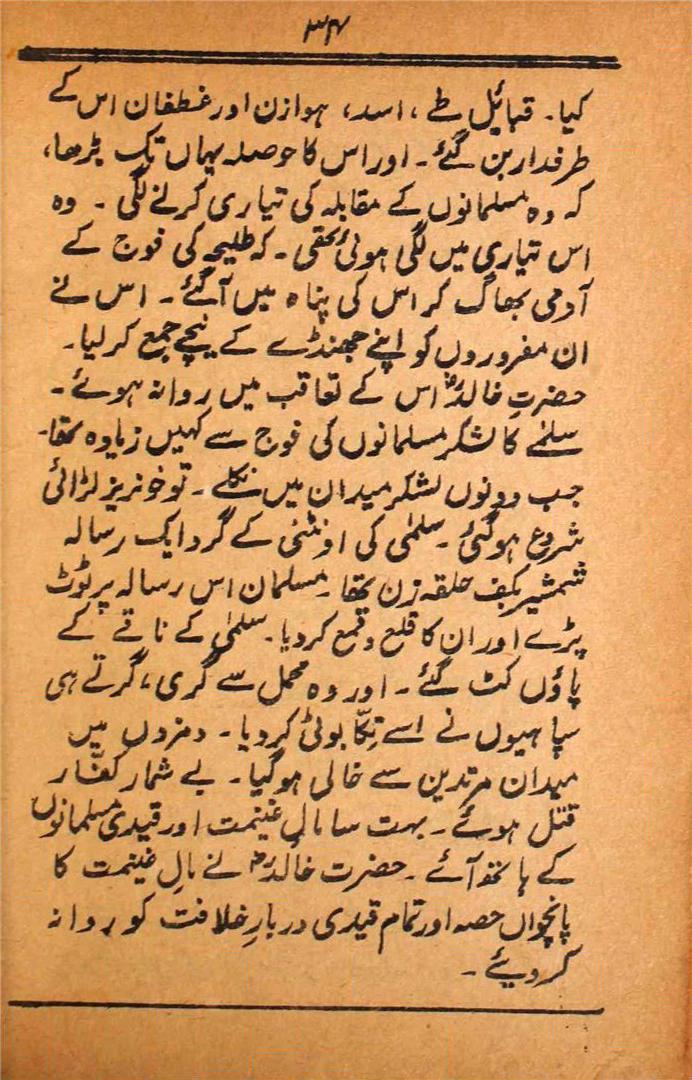 ۳۴
کیا۔ قبائیل طے، اسد، ہوازن اور غطفان اس کے
طرفدار بن گئے۔ اور اس کا حوصلہ یہاں تک بڑھا،
کہ وہ مسلمانوں کے مقابلہ کی تیاری کرنے لگی۔ وہ
اس تیاری میں لگی ہوئی تھی۔ کہ طلیحہ کی فوج کے
آدمی بھاگ کر اس کی پناہ میں آگئے۔ اس نے
ان مفروروں کو اپنے جھنڈے کے نیچے جمع کر لیا۔
حضرتِ خالدؓ اس کے تعاقب میں روانہ ہوئے۔
سلمےٰ کا لشکر مسلمانوں کی فوج سے کہیں زیادہ تھا۔
جب دونوں لشکر میدان میں نکلے۔ تو خونریز لڑائی
شروع ہوگئی۔ سلمٰی کی اونٹنی کے گرد ایک رسالہ
شمشیر بکف حلقہ زن تھا۔ مسلمان اس رسالہ پر ٹوٹ
پڑے اور ان کا قلع و قمع کر دیا۔ سلمٰی کے ناقے کے
پاؤں کٹ گئے۔ اور وہ محمل سے گری، گرتے ہی
سپاہیوں نے اسے تِکّا بوٹی کر دیا۔ دمزدں میں
میدان مرتدین سے خالی ہوگیا۔ بے شمار کفّار
قتل ہوئے۔ بہت سا مالِ غنیمت اور قیدی مسلمانوں
کے ہاتھ آئے۔ حضرت خالدؓ نے مالِ غنیمت کا
پانچواں حصہ اور تمام قیدی دربارِ خلافت کو روانہ
کر دیئے۔